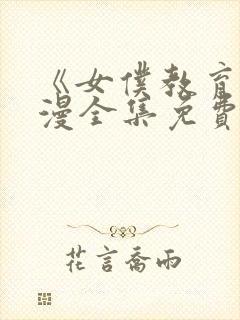 《女僕教育
漫全集免費
花言喬雨